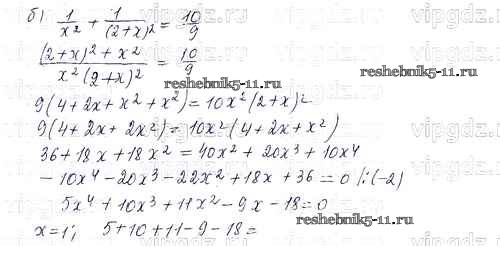 б) 1/x² + 1/(2+x)² = 10/9
((2+x)² + x²)/(x²(2+x)²) = 10/9
reshebnik5-11.ru
9(4+2x+x²+x²) = 10x²(2+x)²
9(4+2x+2x²) = 10x²(4+2x+x²)
36+18x+18x² = 40x²+20x³+10x⁴
-10x⁴-20x³-22x²+18x+36=0 /:(-2)
5x⁴+10x³+11x²-9x-18=0
reshebnik5-11.ru
x=1; 5+10+11-9-18=
vipgdz.ru